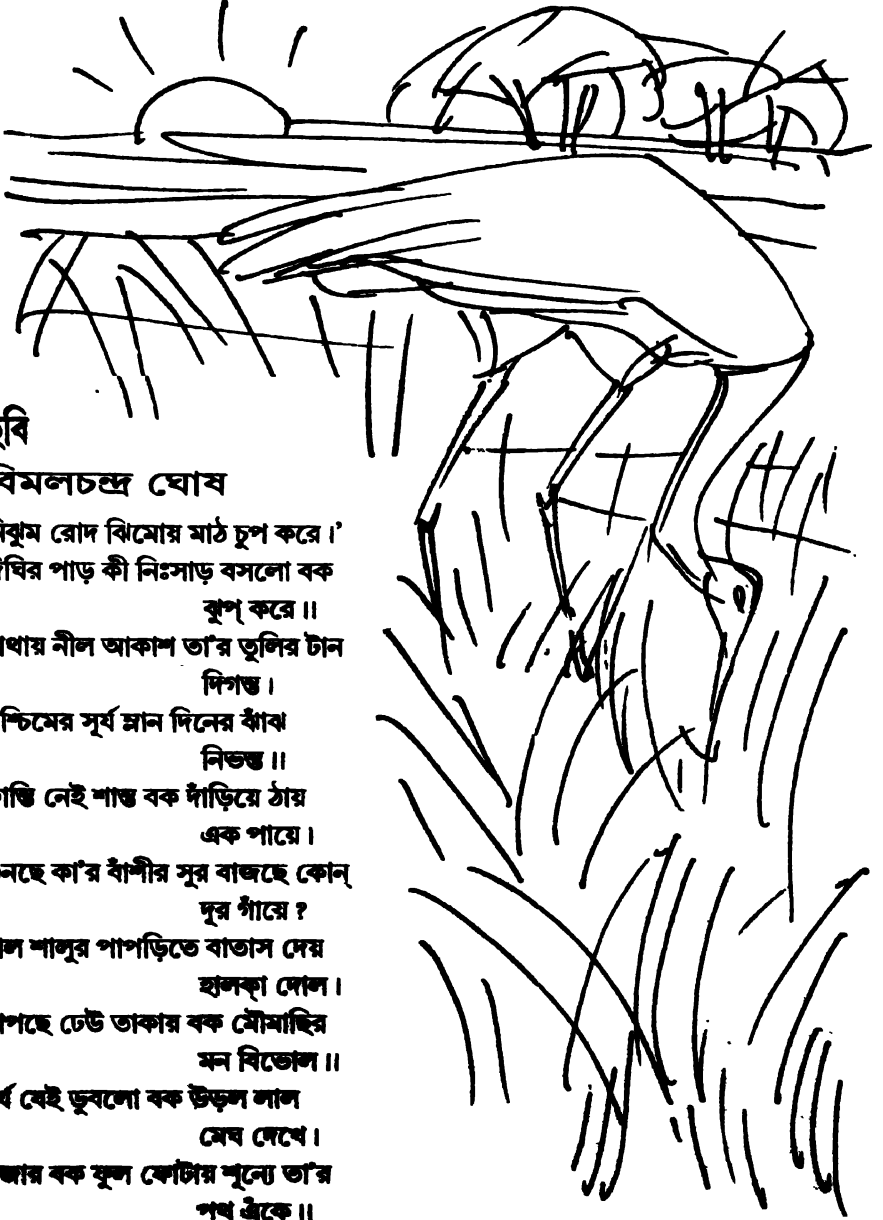 বিমলচন্দ্র ঘোষ
রোদ ঝিমোয় মাঠ চুপ করে।’
পাড় কী নিঃসাড় বসলো বক
ঝুপ্ করে॥
নীল আকাশ তা'র তুলির টান
দিগন্ত।
সূর্য ম্লান দিনের ঝাঁঝ
নিভন্ত॥
নেই শান্ত বক দাঁড়িয়ে ঠায়
এক পায়ে।
কা'র বাঁশীর সুর বাজছে কোন্
দূর গাঁয়ে?
শালুর পাপড়িতে বাতাস দেয়
হালকা দোল।
ঢেউ তাকায় বক মৌমাছির
মন বিভোল॥
যেই ডুবলো বক উড়ল লাল
মেঘ দেখে।
বক ফুল ফোটায় শূন্যে তা'র
পথ এঁকে॥